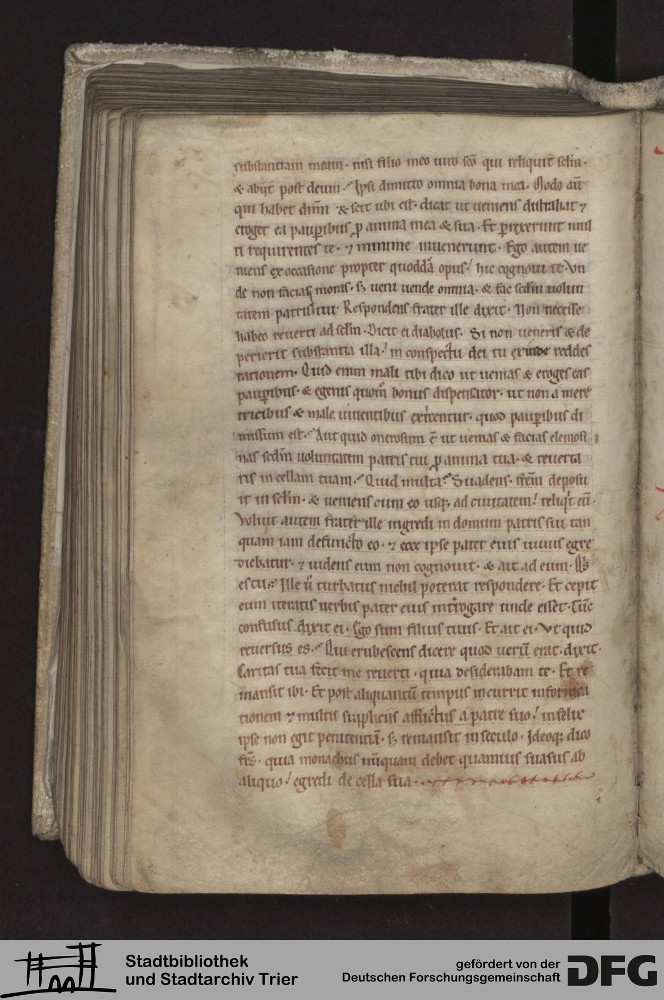 substantiam meam · nisi filio meo uiro sc̄o qui reliquit sclm̄ ·
& abijt post deum · Ipsi dimitto omnia bona mea · Modo aūt
qui habet dn̄m & scit ubi est · dicat ut ueniens distrahat ⁊
eroget ea pauperibus ꝓ anima mea & sua · Et ꝑrexerunt mul
ti requirentes te · ⁊ minime inuenerunt · Ego autem ue
niens ex occasione propter quoddā opus / hic cognoui te · Vn
de non facias moras · sꝫ ueni uende omnia · & fac scdm̄ uolun
tatem patris tui · Respondens frater ille dixit · Non necesse
habeo reuerti ad sclm̄ · Dicit ei diabolus · Si non ueneris & de
perierit substantia illa / in conspectu dei tu exinde reddes
rationem · Quid enim mali tibi dico ut uenias & eroges eas
pauꝑibus · & egenis quom̄ bonus dispensator · ut non a mere
tricibus & male uiuentibus exterentur · quod pauꝑibus di
missum est · Aut quid onerosum ē ut uenias & facias elemosi
nas scdm̄ uoluntatem patris tui ꝓ anima tua · & reuerta
ris in cellam tuam · Quid multa · Suadens frēm deposu
it in sclm̄ · & ueniens cum eo usqꝫ ad ciuitatem / reliqͥt eū ·
Voluit autem frater ille ingredi in domum patris sui tan
quam iam defuncto eo · ⁊ ecce ipse pater eius uiuus egre
diebatur · ⁊ uidens eum non cognouit · & ait ad eum · Qͥs
es tu · Ille ū turbatus nichil poterat respondere · Et cepit
eum iteratis uerbis pater eius int̄rogare unde esset · Tūc
confusus dixit ei · Ego sum filius tuus · Et ait ei · Vt quid
reuersus es · Qui erubescens dicere quod uerū erat · dixit ·
Caritas tua fecit me reuerti · quia desiderabam te · Et re
mansit ibi · Et post aliquantū tempus incurrit in fornica
tionem ⁊ multis supplicijs afflictus a patre suo / infelix
ipse non egit penitentiā · sꝫ remansit in seculo · Ideoqꝫ dico
frs̄ · quia monachus nūquam debet quamuis suasus ab
aliquo / egredi de cella sua ·
Stadtbibliothek
und Stadtarchiv Trier
gefördert von der
Deutschen Forschungsgemeinschaft
DFG